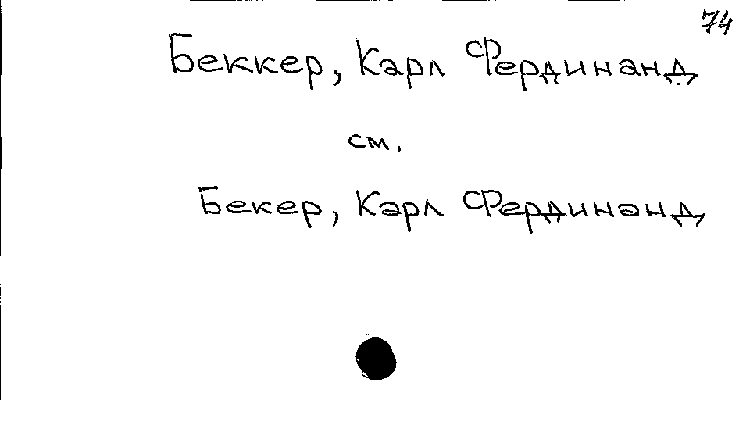 74
Беккер, Карл Фердинанд
см.
Бекер, Карл Фердинанд